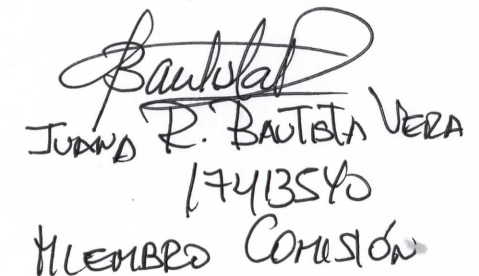 Bautista
JUANA R. BAUTISTA VERA
17413540
MIEMBRO COMISIÓN